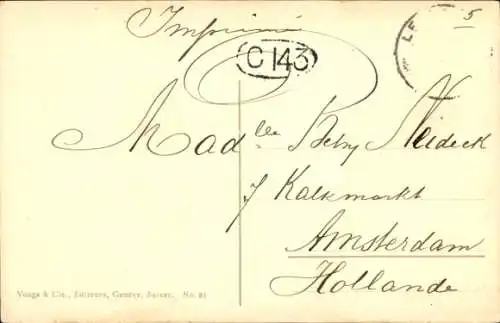 Imprimé
5
C 143
LE
Mad lle Betsy Neideck
7 Kalkmarkt
Amsterdam
Hollande
Vouga & Cie., Editeurs, Genève, Suisse. No. 21